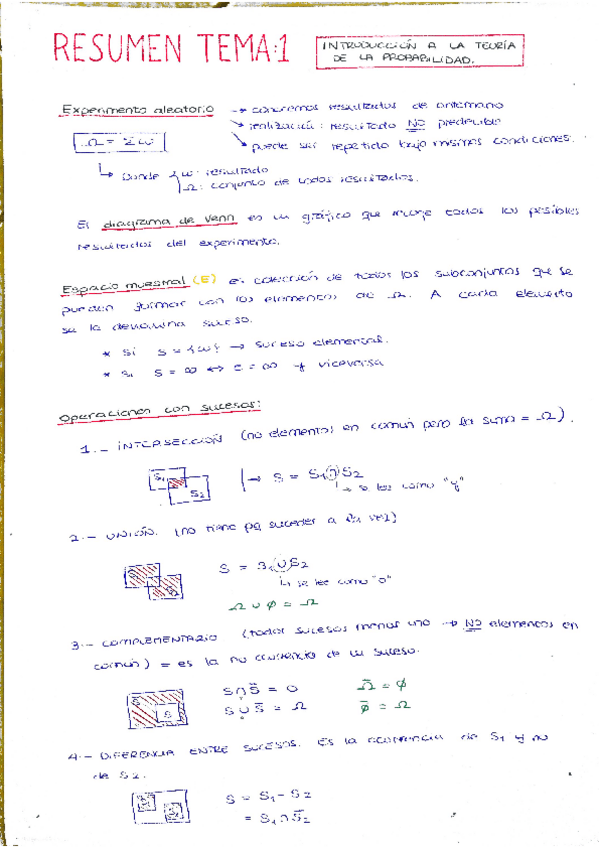 RESUMEN TEMA:1
INTRODUCCIÓN A LA TEORÍA
DE LA PROBABILIDAD.
Experimento aleatorio → conocemos resultados de antemano
→ realización: resultado NO predecible
→ puede ser repetido bajo mismas condiciones.
Ω = Σω
Donde ω: resultado
Ω: conjunto de todos resultados.
El diagrama de Venn es un gráfico que incluye todos los posibles
resultados del experimento.
Espacio muestral (E) es colección de todos los subconjuntos que se
pueden formar con los elementos de Ω. A cada elemento
se le denomina suceso.
* Si S = {ω} → suceso elemental.
* Si S = ∞ ↔ Ɛ = ∞ y viceversa
Operaciones con sucesos:
1.- INTERSECCIÓN (no elementos en común pero la suma = Ω).
S1
S2
→ S = S1∩S2
→ se lee como "y"
2.- UNIÓN. (no tiene pq suceder a la vez)
S = S1∪S2
↳ se lee como "o"
Ω ∪ ∅ = Ω
3.- COMPLEMENTARIO (todos sucesos menos uno → NO elementos en
común) = es la no ocurrencia de un suceso.
S
S∩S̄ = 0 Ω̄ = ∅
S∪S̄ = Ω ∅̄ = Ω
4.- DIFERENCIA ENTRE SUCESOS. Es la ocurrencia de S1 y no
de S2.
S = S1 - S2
= S1∩S̄2